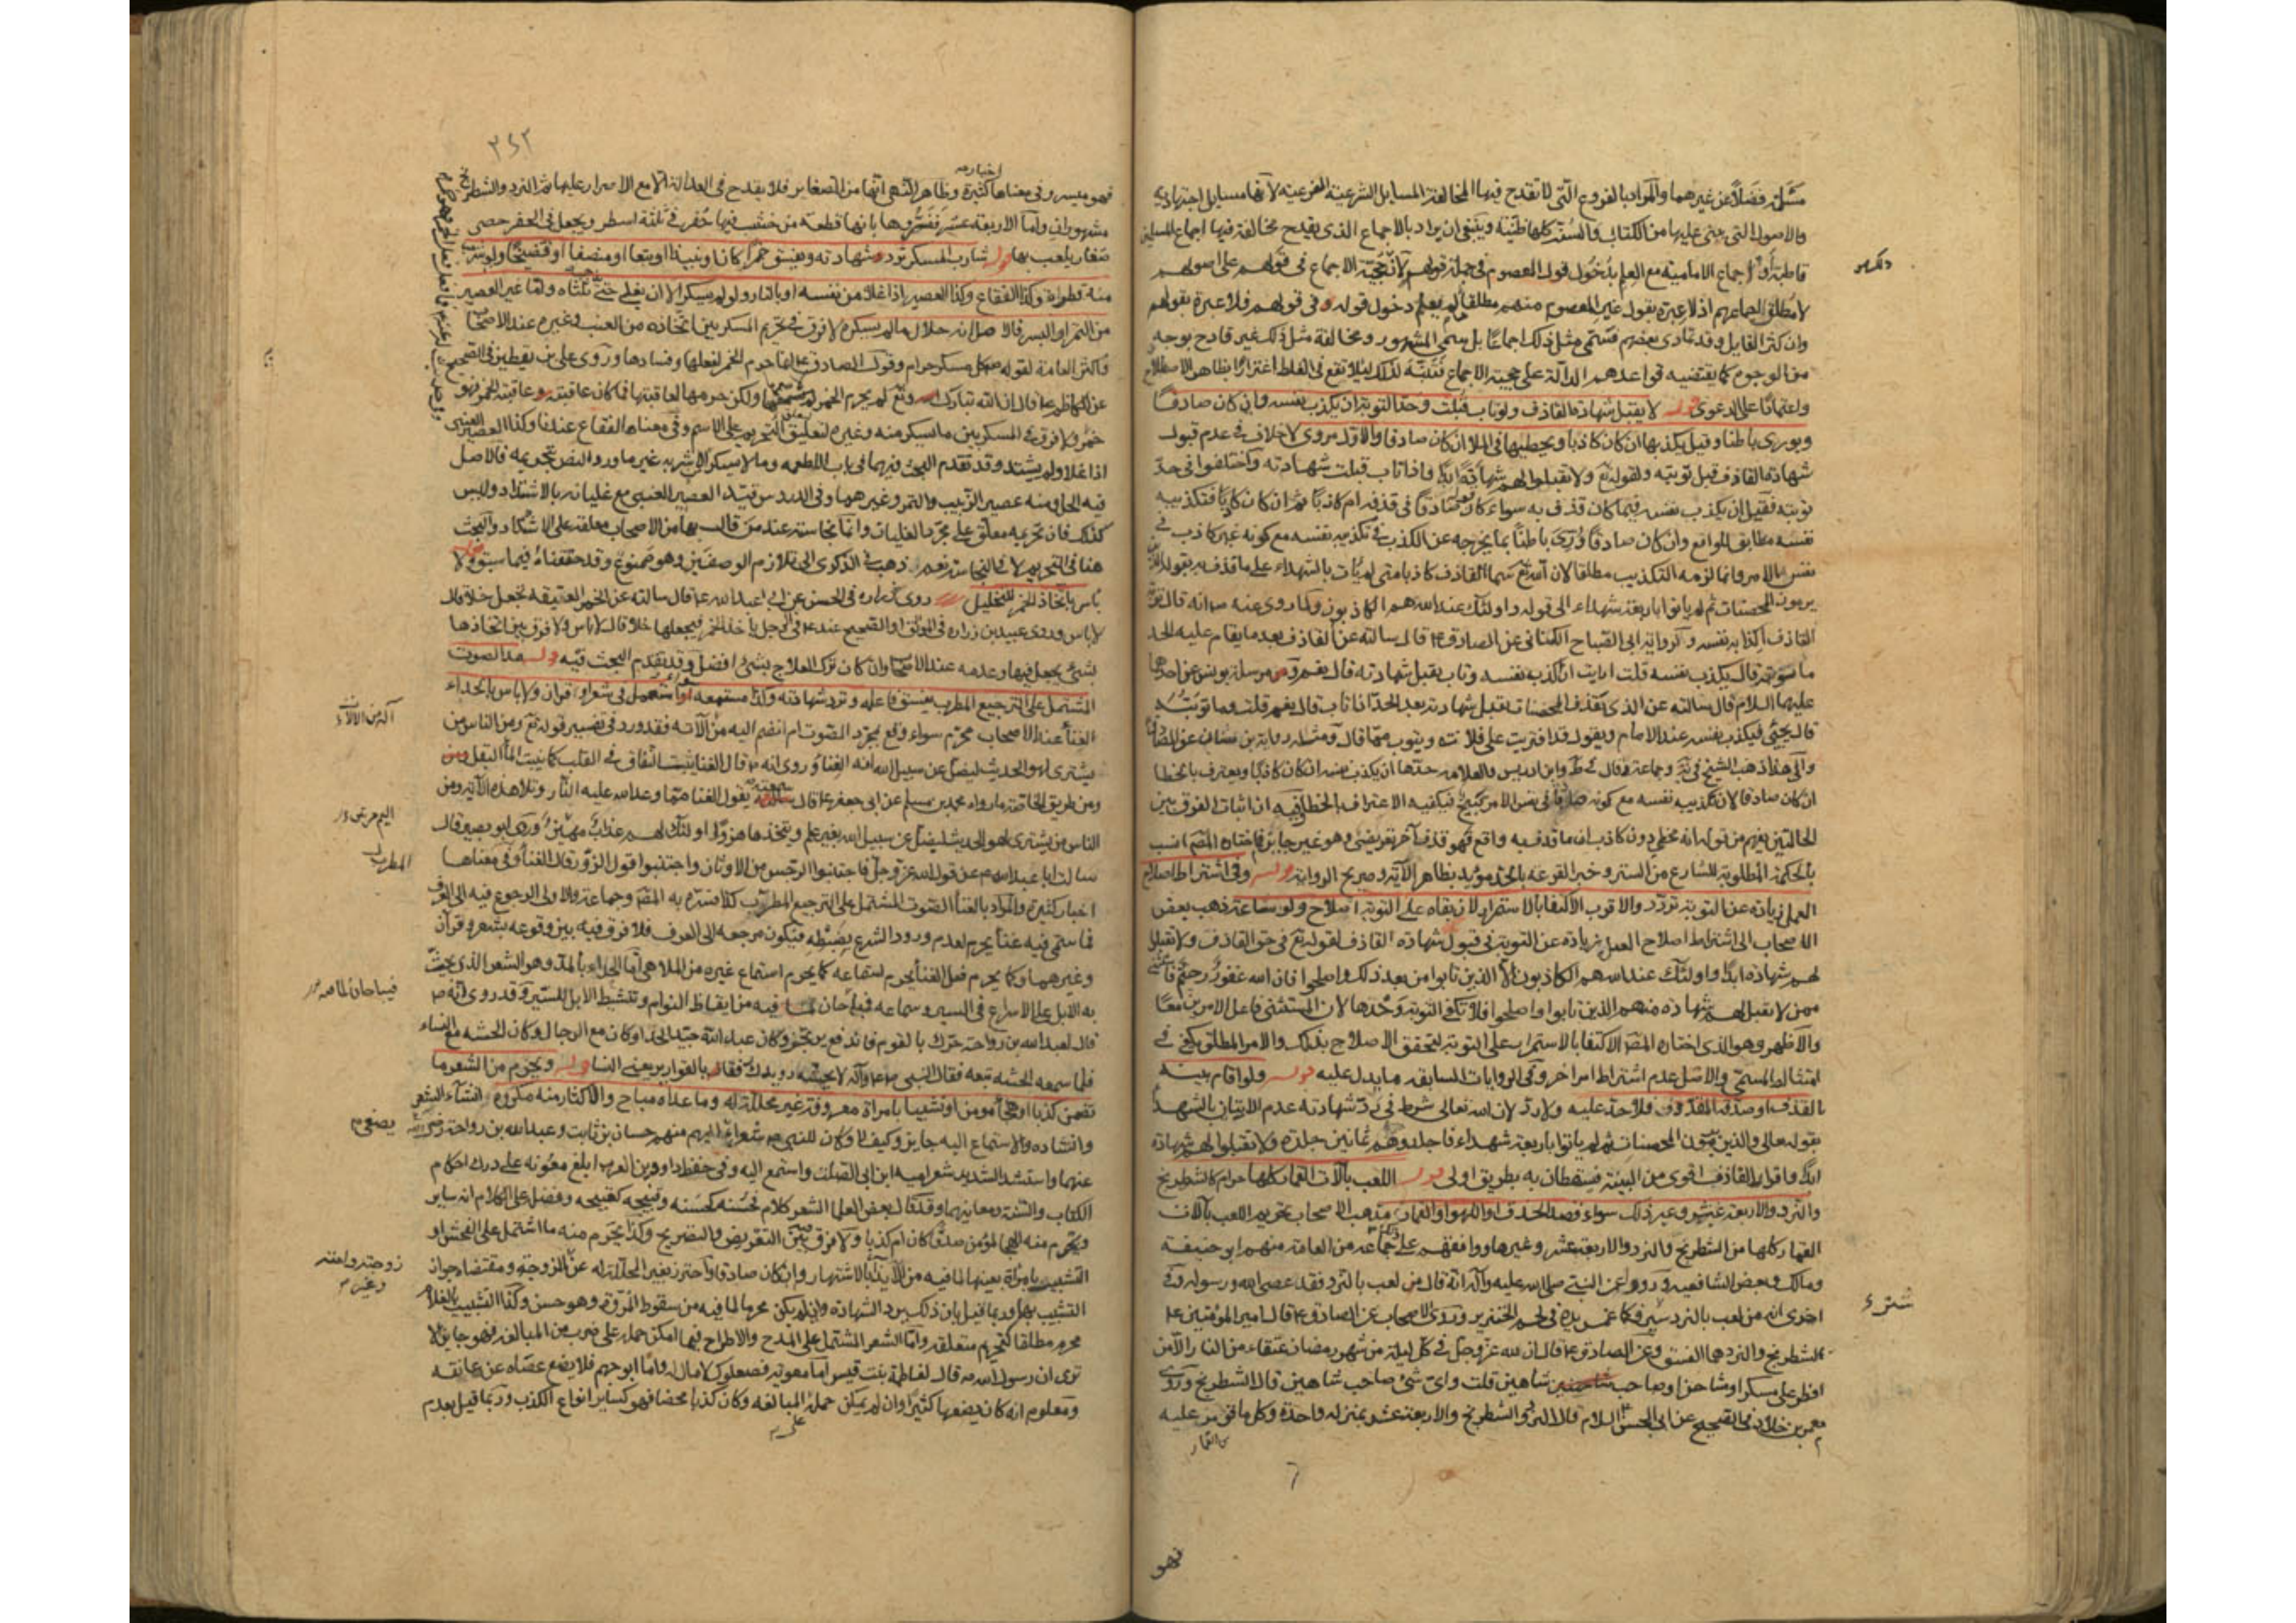 مسئلة فضلا عن غيرهما والمراد بالفروع التي لا تقدح فيها المخالفة المسايل الشرعية الفرعية لانها مسايل اجتهادية
والاصول التي يبنى عليها من الكتاب والسنة كلها ظنية وينبغي ان يراد بالاجماع الذي يقدح مخالفته فيها اجماع المسلمين
قاطبة او اجماع الامامية مع العلم بدخول قول المعصوم في جملة قولهم لانه حجية الاجماع في قولهم على اصولهم
لا مطلق اجماعهم اذ لا عبرة بقول غير المعصوم منهم مطلقا ما لم يعلم دخول قوله في قولهم فلا عبرة بقولهم
وان كثر القايل وقد تمادى بعضهم فسمى مثل ذلك اجماعا بل سمى المشهور ومخالفة مثل ذلك غير قادح بوجه
من الوجوه كما يقتضيه قواعدهم الدالة على حجية الاجماع فتنبه لذلك ليلا تقع في الغلط اغترارا بظاهر الاصطلاح
واعتمادا على الدعوى قوله لا يقبل شهادة القاذف ولو تاب قبلت وحد التوبة ان يكذب نفسه وان كان صادقا
ويورى باطنا وقيل يكذبها ان كان كاذبا ويخطيها في الملا ان كان صادقا والاول مروى لا خلاف في عدم قبول
شهادة القاذف قبل توبته ولقوله تع ولا تقبلوا لهم شهادة ابدا واذا تاب قبلت شهادته واختلفوا في حد
توبته فقيل ان يكذب نفسه فيما كان قذف به سواء كان صادقا في قذفه ام كاذبا ثم ان كان كاذبا فتكذيبه
نفسه مطابق للواقع وان كان صادقا ورى باطنا بما يخرجه عن الكذب في تكذيبه نفسه مع كونه غير كاذب في
نفس الامر وانما لزمه التكذيب مطلقا لان الله تع سما القاذف كاذبا متى لم يات بالشهداء على ما قذف به بقوله
يرمون المحصنات ثم لم ياتوا باربعة شهداء الى قوله واولئك عند الله هم الكاذبون ولما روى عنه ص انه قال توبة
القاذف اكذابه نفسه ولرواية ابى الصباح الكنانى عن الصادق ع قال سالته عن القاذف بعد ما يقام عليه الحد
ما توبته قال يكذب نفسه قلت ارايت ان اكذب نفسه وتاب يقبل شهادته قال نعم ومن مرسلة يونس عن احدهما
عليهما السلام قال سالته عن الذى يقذف المحصنات تقبل شهادته بعد الحد اذا تاب قال نعم قلت وما توبته
قال يجئ فيكذب نفسه عند الامام ويقول قد افتريت على فلانة ويتوب مما قال ومثله رواية بن سنان عن الصادق
والى هذا ذهب الشيخ في يه وجماعة وقال في ط وابن ادريس والعلامه حدها ان يكذب نفسه ان كان كاذبا ويعترف بالخطا
ان كان صادقا لان تكذيبه نفسه مع كونه صادقا في نفس الامر قبيح فيكفيه الاعتراف بالخطا
الحالتين يفهم من قوله انه مخطي دون كاذب ان ما قذف به واقع فهو قذف آخر تعريضي وهو غير جايز فما اختاره المصـ انسب
بالحكمة المطلوبة للشارع من الستر وخبر القرعه بالحد مؤيد بظاهر الآية وصريح الرواية قوله وفي اشتراط اصلاح
العمل زيادة عن التوبة تردد والاقرب الاكتفا بالاستمرار لان بقاه على التوبة اصلاح ولو ساعة ذهب بعض
الاصحاب الى اشتراط اصلاح العمل زيادة عن التوبة في قبول شهادة القاذف لقوله تع في حق القاذف ولا تقبلوا
لهم شهادة ابدا واولئك عند الله هم الكاذبون الا الذين تابوا من بعد ذلك واصلحوا فان الله غفور رحيم فاستثنى
ممن لا يقبل لهم شهادة منهم الذين تابوا واصلحوا فلا تكفي التوبة وحدها لان المستثنى فاعل الامرين معا
والاظهر وهو الذى اختاره المصـ الاكتفا بالاستمرار على التوبة لتحقق الاصلاح بذلك والامر المطلق يكفي في
امتثاله المسمى والاصل عدم اشتراط امر اخر وفي الروايات السابقة ما يدل عليه قوله ولو اقام بينة
بالقذف او صدقه المقذوف فلا حد عليه ولا رد لان الله تعالى شرط في رد شهادته عدم الاتيان بالشهدا
بقوله تعالى والذين يرمون المحصنات ثم لم ياتوا باربعة شهداء فاجلدوهم ثمانين جلدة ولا تقبلوا لهم شهادة
ابدا واقرار القاذف اقوى من البينة فيسقطان به بطريق اولى قوله اللعب بآلات القمار كلها حرام كالشطرنج
والنرد والاربعة عشر وغير ذلك سواء قصد الحذق او اللهو او القمار مذهب الاصحاب تحريم اللعب بآلات
القمار كلها من الشطرنج والنرد والاربعة عشر وغيرها ووافقهم على ذلك جماعة من العامة منهم ابو حنيفة
ومالك وبعض الشافعيه ورووا عن النبي صلى الله عليه وآله انه قال من لعب بالنرد فقد عصى الله ورسوله وفي
اخرى انه من لعب بالنردشير فكانما غمس يده في لحم الخنزير وروى الاصحاب عن الصادق ع قال امير المومنين ع
الشطرنج والنرد هما الفسق وعن الصادق ع قال ان لله عز وجل في كل ليلة من شهر رمضان عتقاء من النار الا من
افطر على مسكر او مشاحن او صاحب شاهين قلت واى شئ صاحب شاهين قال الشطرنج وروى
معمر بن خلاد في الصحيح عن ابى الحسن ع السلام قال النرد والشطرنج والاربعة عشر بمنزلة واحدة وكل ما قومر عليه
فهو
٣٤٢
فهو ميسر وفي معناها اخبار كثيرة وظاهر النهى انها من الصغاير فلا يقدح في العدالة الا مع الاصرار عليها ثم النرد والشطرنج
مشهوران واما الاربعة عشر ففسروها بانها قطعة من خشب فيها حفر في ثلثة اسطر ويجعل في الحفر حصى
صغار يلعب بها قوله شارب المسكر ترد شهادته ويفسق خمرا كان او نبيذا او بتعا او منصفا او فضيخا ولو شرب
منه قطرة وكذا الفقاع وكذا العصير اذا غلا من نفسه او بالنار ولو لم يسكر الا ان يغلى حتى يذهب ثلثاه واما غير العصير
من التمر او البسر فالاصل انه حلال ما لم يسكر لا فرق في تحريم المسكر بين اتخاذه من العنب وغيره عند الاصحاب
واكثر العامة لقوله ص كل مسكر حرام وقول الصادق ع انما حرم الخمر لفعلها وفسادها وروى على بن يقطين في الصحيح
عن الكاظم ع قال ان الله تبارك وتع لم يحرم الخمر لاسمها ولكن حرمها لعاقبتها فما كان عاقبته عاقبة الخمر فهو
خمر ولا فرق في المسكر بين ما يسكر منه وغيره لتعليق التحريم على الاسم وفي معناه الفقاع عندنا وكذا العصير العنبى
اذا غلا ولم يشتد وقد تقدم البحث فيهما في باب الاطعمه وما لا يسكر من الاشربه غير ما ورد النص بتحريمه فالاصل
فيه الحل ومنه عصير الزبيب والتمر وغيرهما وفي الدروس قيد العصير العنبى مع غليانه بالاشتداد وليس
كذلك فان تحريمه معلق على مجرد الغليان وانما نجاسته عند من قال بها من الاصحاب معلقة على الاشتداد والبحث
هنا في التحريم لا في النجاسة نعم ذهب في الذكرى الى تلازم الوصفين وهو ممنوع وقد حققناه فيما سبق قوله ولا
باس باتخاذ الخمر للتخليل روى زراره في الحسن عن ابى عبدالله ع قال سالته عن الخمر العتيقه تجعل خلا قال
لا باس وروى عبيد بن زراره في الموثق او الصحيح عنه ع في الرجل ياخذ الخمر فيجعلها خلا قال لا باس ولا فرق بين اتخاذها
بشئ يجعل فيها وعدمه عند الاصحاب وان كان ترك العلاج بشئ افضل وقد تقدم البحث فيه قوله مد الصوت
المشتمل على الترجيع المطرب يفسق فاعله وترد شهادته وكذا مستمعه سواء استعمل في شعر او قرآن ولا باس بالحداء
الغناء عند الاصحاب محرم سواء وقع بمجرد الصوت ام انضم اليه من الآلات فقد ورد في تفسير قوله تع ومن الناس من
يشترى لهو الحديث ليضل عن سبيل الله انه الغناء وروى انه ص قال الغنا ينبت النفاق في القلب كما ينبت الماء البقل ومن
ومن طريق الخاصة ما رواه محمد بن مسلم عن ابى جعفر ع قال سمعته يقول الغنا مما وعد الله عليه النار وتلا هذه الآية ومن
الناس من يشترى لهو الحديث ليضل عن سبيل الله بغير علم ويتخذها هزوا اولئك لهم عذاب مهين وروى ابو بصير قال
سالت ابا عبدالله ع عن قول الله عز وجل فاجتنبوا الرجس من الاوثان واجتنبوا قول الزور قال الغناء وفي معناها
اخبار كثيرة والمراد بالغناء الصوت المشتمل على الترجيع المطرب كذا فسره به المصـ وجماعة والاولى الرجوع فيه الى العرف
فما سمى فيه غناء يحرم لعدم ورود الشرع بضبطه فيكون مرجعه الى العرف فلا فرق فيه بين وقوعه بشعر وقرآن
وغيرهما وكما يحرم فعل الغناء يحرم استماعه كما يحرم استماع غيره من الملاهى اما الحداء بالمد وهو الشعر الذى يحث
به الابل على الاسراع في السير وسماعه فمباحان لما فيه من ايقاظ النوام وتنشيط الابل للسير وقد روى انه ص
قال لعبدالله بن رواحة حرك بالقوم فاندفع يرتجز وكان عبدالله جيد الحدا وكان مع الرجال وكان انجشه مع النساء
فلما سمعه انجشه تبعه فقال النبى ص وآله لانجشه رويدك رفقا بالقوارير يعنى النسا قوله ويحرم من الشعر ما
تضمن كذبا او هجاء مومن او تشبيبا بامراة معروفة غير محللة له وما عداه مباح والاكثار منه مكروه انشاء الشعر
وانشاده والاستماع اليه جايز وكيف لا وكان للنبى ص شعراء يصغى اليهم منهم حسان بن ثابت وعبدالله بن رواحة رضى الله
عنهما واستنشد الشريد شعر امية ابن ابى الصلت واستمع اليه وفي حفظ دواوين العرب ابلغ معونة على درك احكام
الكتاب والسنة ومعانيهما وقد قال بعض العلما الشعر كلام فحسنه كحسنه وقبيحه كقبيحه وفضل على الكلام انه ساير
ويحرم منه هجاء المؤمن صدقا كان ام كذبا ولا فرق بين التعريض والتصريح وكذا يحرم منه ما اشتمل على الفحش او
التشبيب بامراة بعينها لما فيه من الايذاء بالاشتهار وان كان صادقا واحترز بغير المحللة له عن الزوجة ومقتضاه جواز
التشبيب بها وربما قيل بان ذلك يرد الشهادة وان لم يكن محرما لما فيه من سقوط المروة وهو حسن وكذا التشبيب بالغلام
محرم مطلقا لتحريم متعلقه واما الشعر المشتمل على المدح والاطراح فيما امكن حمله على ضرب من المبالغه فهو جايز الا
ترى ان رسول الله ص قال لفاطمة بنت قيس اما معويه فصعلوك لا مال له واما ابو جهم فلا يضع عصاه عن عاتقه
ومعلوم انه كان يضعها كثيرا وان لم يمكن حمله على المبالغه وكان كذبا محضا فهو كساير انواع الكذب وربما قيل بعدم